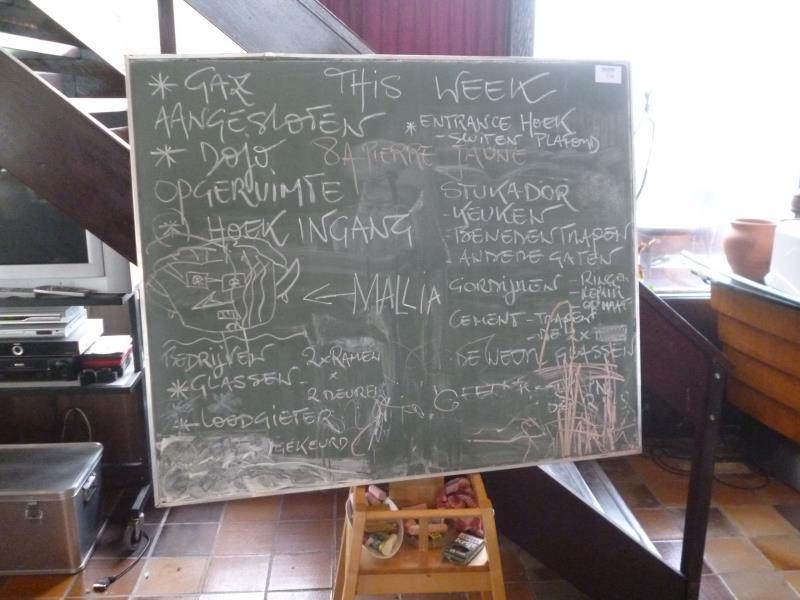 THIS WEEK
* GAZ
AANGESLOTEN
* DOJO
OPGERUIMTE
* HOEK INGANG
← MALLIA
BEDRIJVEN
* GLASSEN - 2 x RAMEN
x
2 DEUREN
* LOODGIETER
GEKEURD
* ENTRANCE HOEK
- SLUITEN PLAFOND
8A PIERRE JAUNE
STUKADOR
- KEUKEN
- BENEDEN TRAPEN
- ANDERE GATEN
GORDIJNEN - RINGEN
REPAIR
CEMENT - TRAPEN
- DE 2 x
GLASSEN